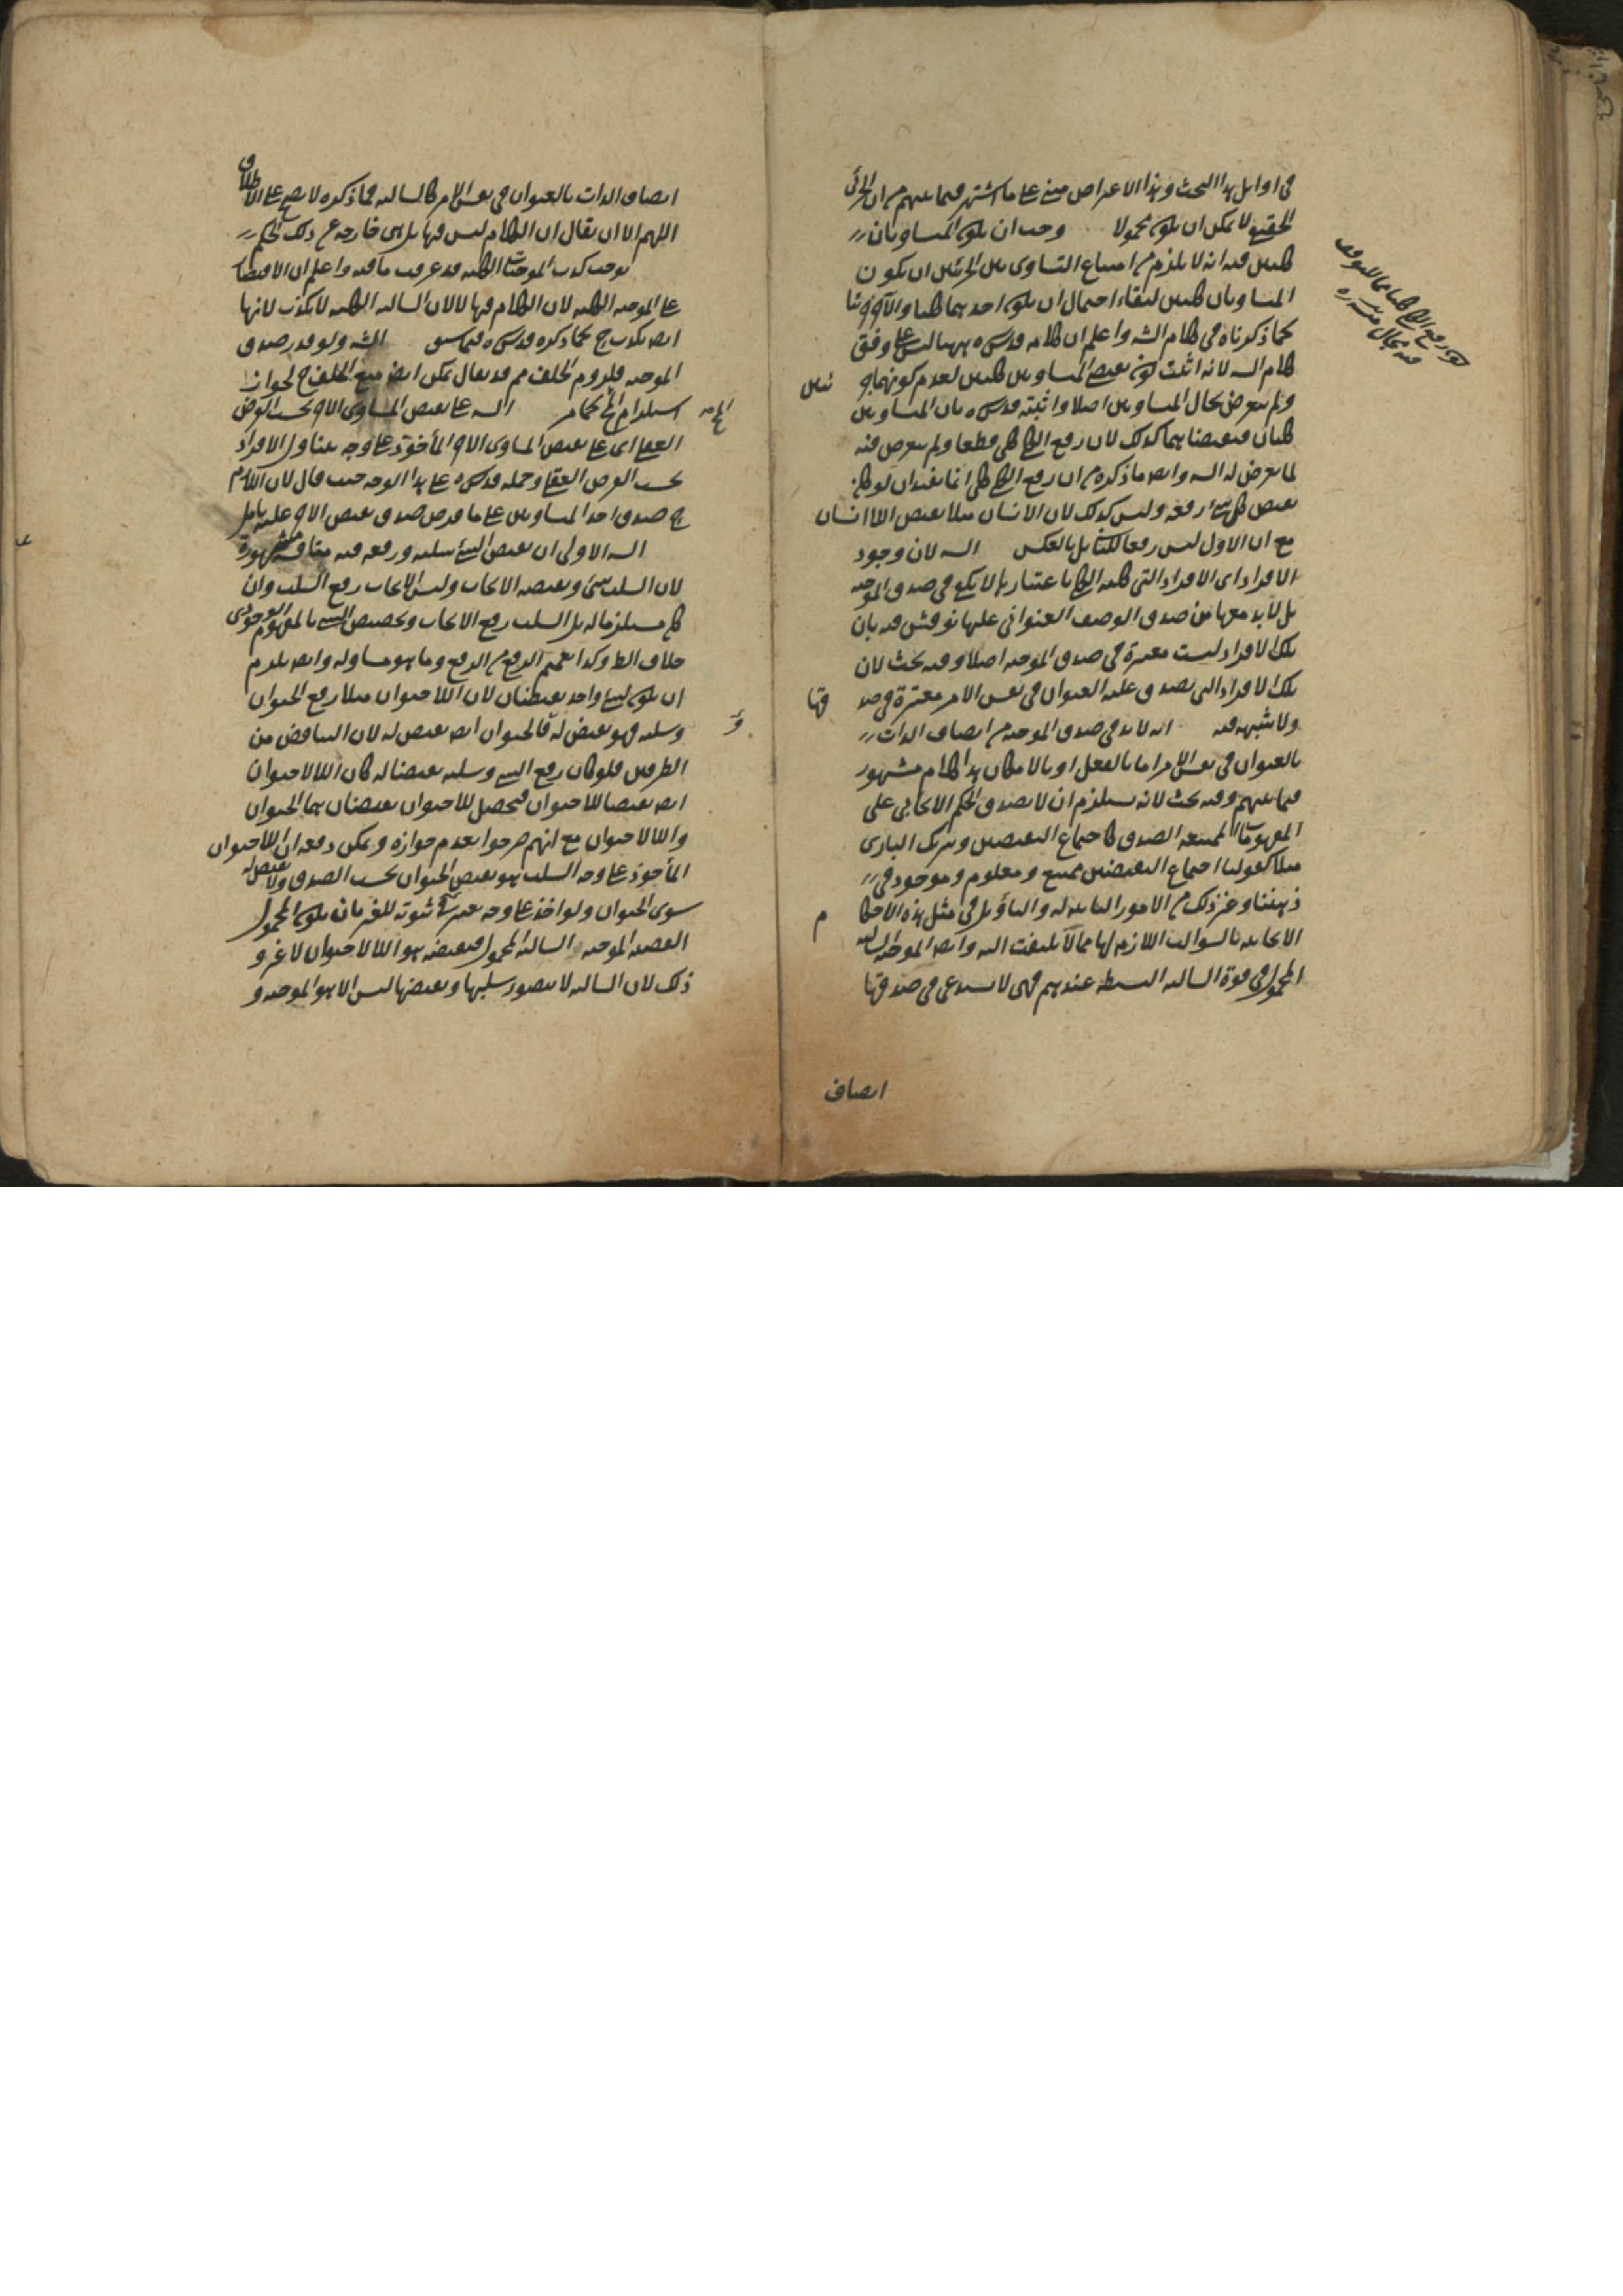 في اوايل هذا البحث وهذا الاعتراض مبني على ما اشتهر فيما بينهم من ان الجزئي
الحقيقي لا يمكن ان يكون محمولا وجب ان يكون المتساويان
كليين فيه انه لا يلزم من امتناع التساوي بين الجزئيين ان يكون
المتساويان كليين لبقاء احتمال ان يكون احدهما كليا والآخر جزئيا
كما ذكرناه في كلام الشـ واعلم ان كلامه قدس سره ههنا ليس على وفق
كلام السـ لانه اثبت كون نقيضي المتساويين كليين لعدم كونهما جزئيين
ولم يتعرض لحال المتساويين اصلا واثبته قدس سره بان المتساويين
كليان فنقيضاهما كذلك لان رفع الكلي كلي قطعا ولم يتعرض فيه
لما تعرض له السـ وايضا ما ذكره من ان رفع الكلي كلي انما يفيد ان لو كان
نقيض كل شئ رفعه وليس كذلك لان الانسان مثلا نقيض اللاانسان
مع ان الاول ليس رفعا للثاني بل بالعكس السـ لان وجود
الافراد اى الافراد التي كلية الكلي باعتبارها لا يكفي في صدق الموجبة
بل لا بد معها من صدق الوصف العنواني عليها نوقش فيه بان
تلك الافراد ليست معتبرة في صدق الموجبة اصلا وفيه بحث لان
تلك الافراد التي يصدق عليه العنوان في نفس الامر معتبرة في صدقها
ولا شبهة فيه انه لا بد في صدق الموجبة من اتصاف الذات
بالعنوان في نفس الامر اما بالفعل او بالامكان هذا كلام مشهور
فيما بينهم وفيه بحث لانه يستلزم ان لا يصدق الحكم الايجابي على
المفهومات الممتنعة الصدق كاجتماع النقيضين وشريك الباري
مثلا كقولنا اجتماع النقيضين ممتنع ومعلوم وموجود في
ذهننا وغير ذلك من الامور الثابتة له والتأويل في مثل هذه الاحكام
الايجابية بالسوالب اللازمة لها مما لا يلتفت اليه وايضا الموجبة السالبة
المحمول في قوة السالبة البسيطة عندهم فهى لا يستدعى في صدقها
اتصاف
اتصاف الذات بالعنوان في نفس الامر كالسالبة فما ذكره لا يصح على الاطلاق
اللهم الا ان يقال ان الكلام ليس فيها بل هى خارجة عن ذلك الحكم
يوجب كذب الموجبات الكلية قد عرفت ما فيه واعلم ان الاقتصار
على الموجبة الكلية لان الكلام فيها لا لان السالبة الكلية لا يكذب لانها
ايضا يكذب ح كما ذكره قدس سره فيما سبق الشـ ولو قدر صدق
الموجبة فلزوم الخلف مم قد يقال يمكن ايضا منع الخلف ح لجواز
استلزام المح كما مر السـ على نقيض المساوى الآخر بحسب الفرض
العقلي اى على نقيض المساوى الآخر المأخوذ على وجه يتناول الافراد
بحسب الفرض العقلي وحمله قدس سره على هذا الوجه حيث قال لان اللازم
ح صدق احد المتساويين على ما فرض صدق نقيض الآخر عليه تأمل
السـ الاولى ان نقيض الشئ سلبه ورفعه فيه مناقشة مشهورة
لان السلب شئ ونقيضه الايجاب وليس الايجاب رفع السلب وان
كان مستلزما له بل السلب رفع الايجاب وتخصيص الشئ بالمفهوم الوجودى
خلاف الظ وكذا تعميم الرفع من الرفع وما هو مساو له وايضا يلزم
ان يكون لشئ واحد نقيضان لان اللاحيوان مثلا رفع الحيوان
وسلبه فهو نقيض له فالحيوان ايضا نقيض له لان التناقض من
الطرفين فلو كان رفع الشئ وسلبه نقيضا له كان اللالاحيوان
ايضا نقيضا للاحيوان فيحصل للاحيوان نقيضان هما الحيوان
واللالاحيوان مع انهم صرحوا بعدم جوازه ويمكن دفعه ان اللاحيوان
المأخوذ على وجه السلب هو نقيض الحيوان بحسب الصدق ولا نقيض له
سوى الحيوان ولو اخذ على وجه يعتبر ثبوته للغير بان يكون المحمول
القضية الموجبة السالبة المحمول فنقيضه هو اللالاحيوان لا غير و
ذلك لان السالبة لا يتصور سلبها ونقيضها ليس الا هو الموجبة و